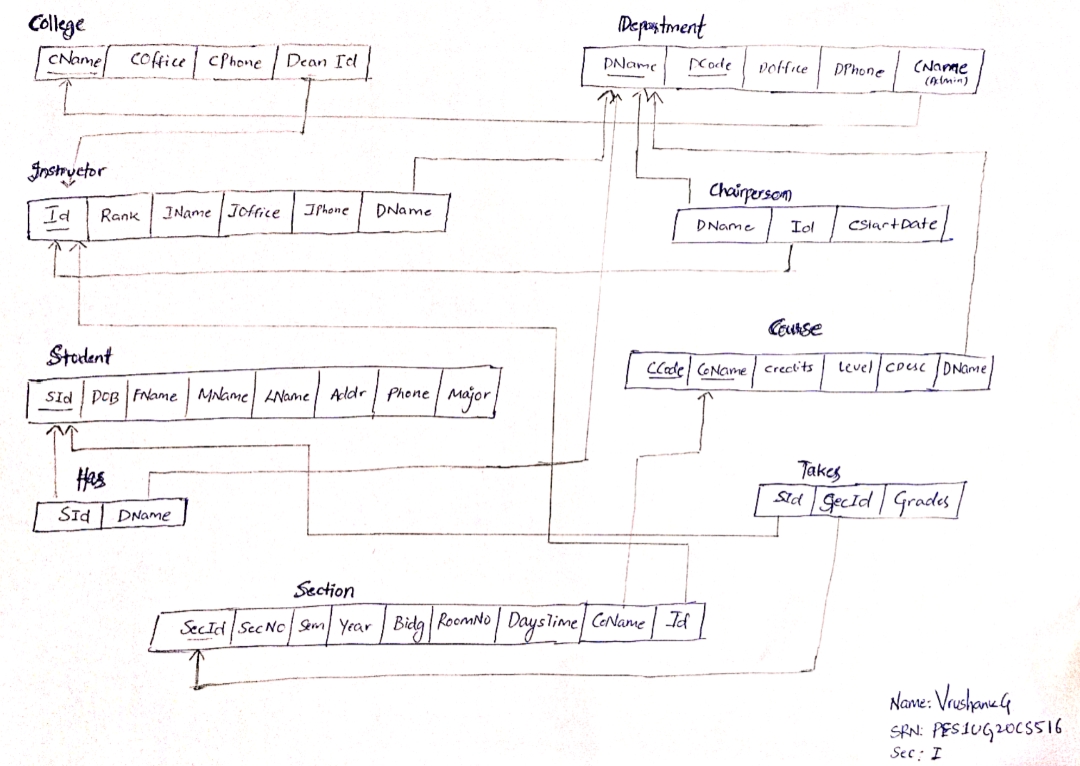 College
CName COffice CPhone Dean Id
Department
DName DCode DOffice DPhone CName
(Admin)
Instructor
Id Rank IName IOffice IPhone DName
Chairperson
DName Id CStartDate
Course
CCode CoName Credits Level CDesc DName
Student
SId DOB FName MName LName Addr Phone Major
Has
SId DName
Takes
SId SecId Grades
Section
SecId SecNo Sem Year Bldg RoomNo DaysTime CoName Id
Name: Vrushank G
SRN: PES1UG20CS516
Sec: I